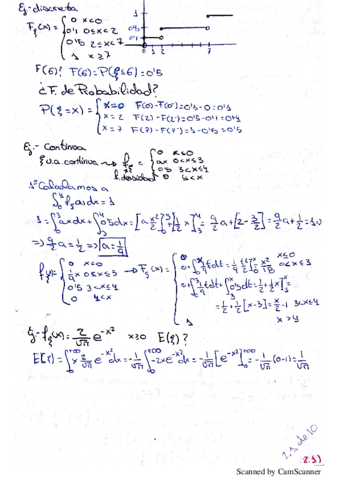 Ej- discreta
F_ξ(x) = { 0 x<0
0'1 0≤x<2
0'5 2≤x<7
1 x≥7
1
0'5
0'1
0 1 2 7
F(6)? F(6) = P(ξ≤6) = 0'5
¿F. de Probabilidad?
P(ξ=x) = { x=0 F(0)-F(0⁻)=0'1-0=0'1
x=2 F(2)-F(2⁻)=0'5-0'1=0'4
x=7 F(7)-F(7⁻)=1-0'5=0'5
Ej.- Continua
ξ v.a. continua → f_ξ = { 0 x<0
ax 0<x≤3
0'5 3<x≤4
0 4<x
f. densidad
1º Calculamos a
∫ f(x)dx = 1
1 = ∫₀³ ax dx + ∫₃⁴ 0'5dx = [a x²/2]₀³ + [1/2 x]₃⁴ = 9/2 a + [2 - 3/2] = 9/2 a + 1/2 = 1
=> 9/2 a = 1/2 => a = 1/9
0 x<0
1/9 x 0≤x≤3
0'5 3<x≤4
0 4<x
→ F_ξ(x) = { 0 x≤0
0 + ∫₀ˣ 1/9 t dt = 1/9 [t²/2]₀ˣ = x²/18 0<x≤3
0 + ∫₀³ 1/9 t dt + ∫₃ˣ 0'5 dt = 1/2 + 1/2 x]₃ˣ =
= 1/2 + 1/2 [x-3] = x/2 - 1 3<x≤4
1 x>4
Ej- f_ξ(x) = 2/√π e^{-x²} x≥0 E(ξ)?
E[ξ] = ∫₀^{+∞} x 2/√π e^{-x²} dx = -1/√π ∫₀^{+∞} -2x e^{-x²} dx = -1/√π [e^{-x²}]₀^{+∞} = -1/√π (0-1) = 1/√π
2.1 de 10
2.1)
Scanned by CamScanner